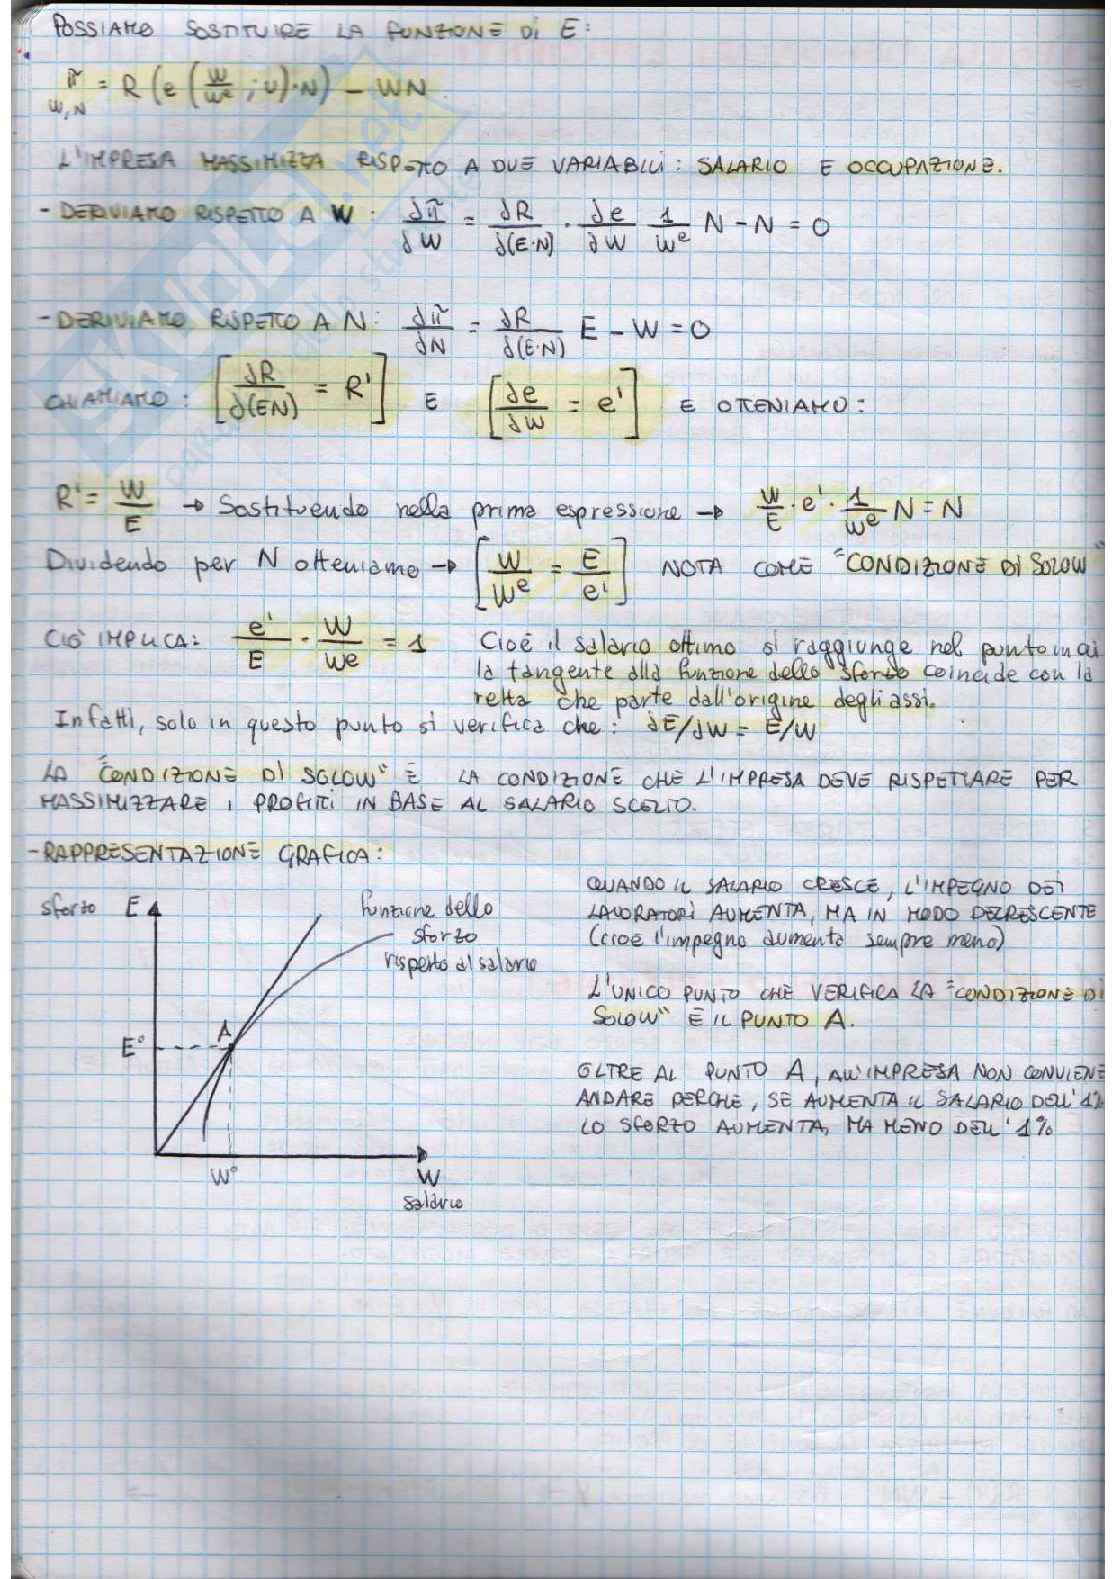 POSSIAMO SOSTITUIRE LA FUNZIONE DI E:
π = R (e (W/Wᵉ ; U)·N) - WN
W,N
L'IMPRESA MASSIMIZZA RISPETTO A DUE VARIABILI: SALARIO E OCCUPAZIONE.
- DERIVIAMO RISPETTO A W: ∂π/∂W = ∂R/∂(E·N) · ∂e/∂W 1/Wᵉ N - N = 0
- DERIVIAMO RISPETTO A N: ∂π/∂N = ∂R/∂(E·N) E - W = 0
CHIAMIAMO: [∂R/∂(EN) = R'] E [∂e/∂W = e'] E OTTENIAMO:
R' = W/E → Sostituendo nella prima espressione → W/E · e' · 1/Wᵉ N = N
Dividendo per N otteniamo → [W/Wᵉ = E/e'] NOTA COME "CONDIZIONE DI SOLOW"
CIO' IMPLICA: e'/E · W/We = 1 Cioè il salario ottimo si raggiunge nel punto in cui
la tangente alla funzione dello sforzo coincide con la
retta che parte dall'origine degli assi.
Infatti, solo in questo punto si verifica che: ∂E/∂W = E/W
LA "CONDIZIONE DI SOLOW" È LA CONDIZIONE CHE L'IMPRESA DEVE RISPETTARE PER
MASSIMIZZARE I PROFITTI IN BASE AL SALARIO SCELTO.
- RAPPRESENTAZIONE GRAFICA:
sforzo E
funzione dello
sforzo
rispetto al salario
A
E°
W°
W
salario
QUANDO IL SALARIO CRESCE, L'IMPEGNO DEI
LAVORATORI AUMENTA, MA IN MODO DECRESCENTE
(cioè l'impegno aumenta sempre meno)
L'UNICO PUNTO CHE VERIFICA LA "CONDIZIONE DI
SOLOW" È IL PUNTO A.
OLTRE AL PUNTO A, ALL'IMPRESA NON CONVIENE
ANDARE PERCHÈ, SE AUMENTA IL SALARIO DELL'1%
LO SFORZO AUMENTA, MA MENO DELL'1%